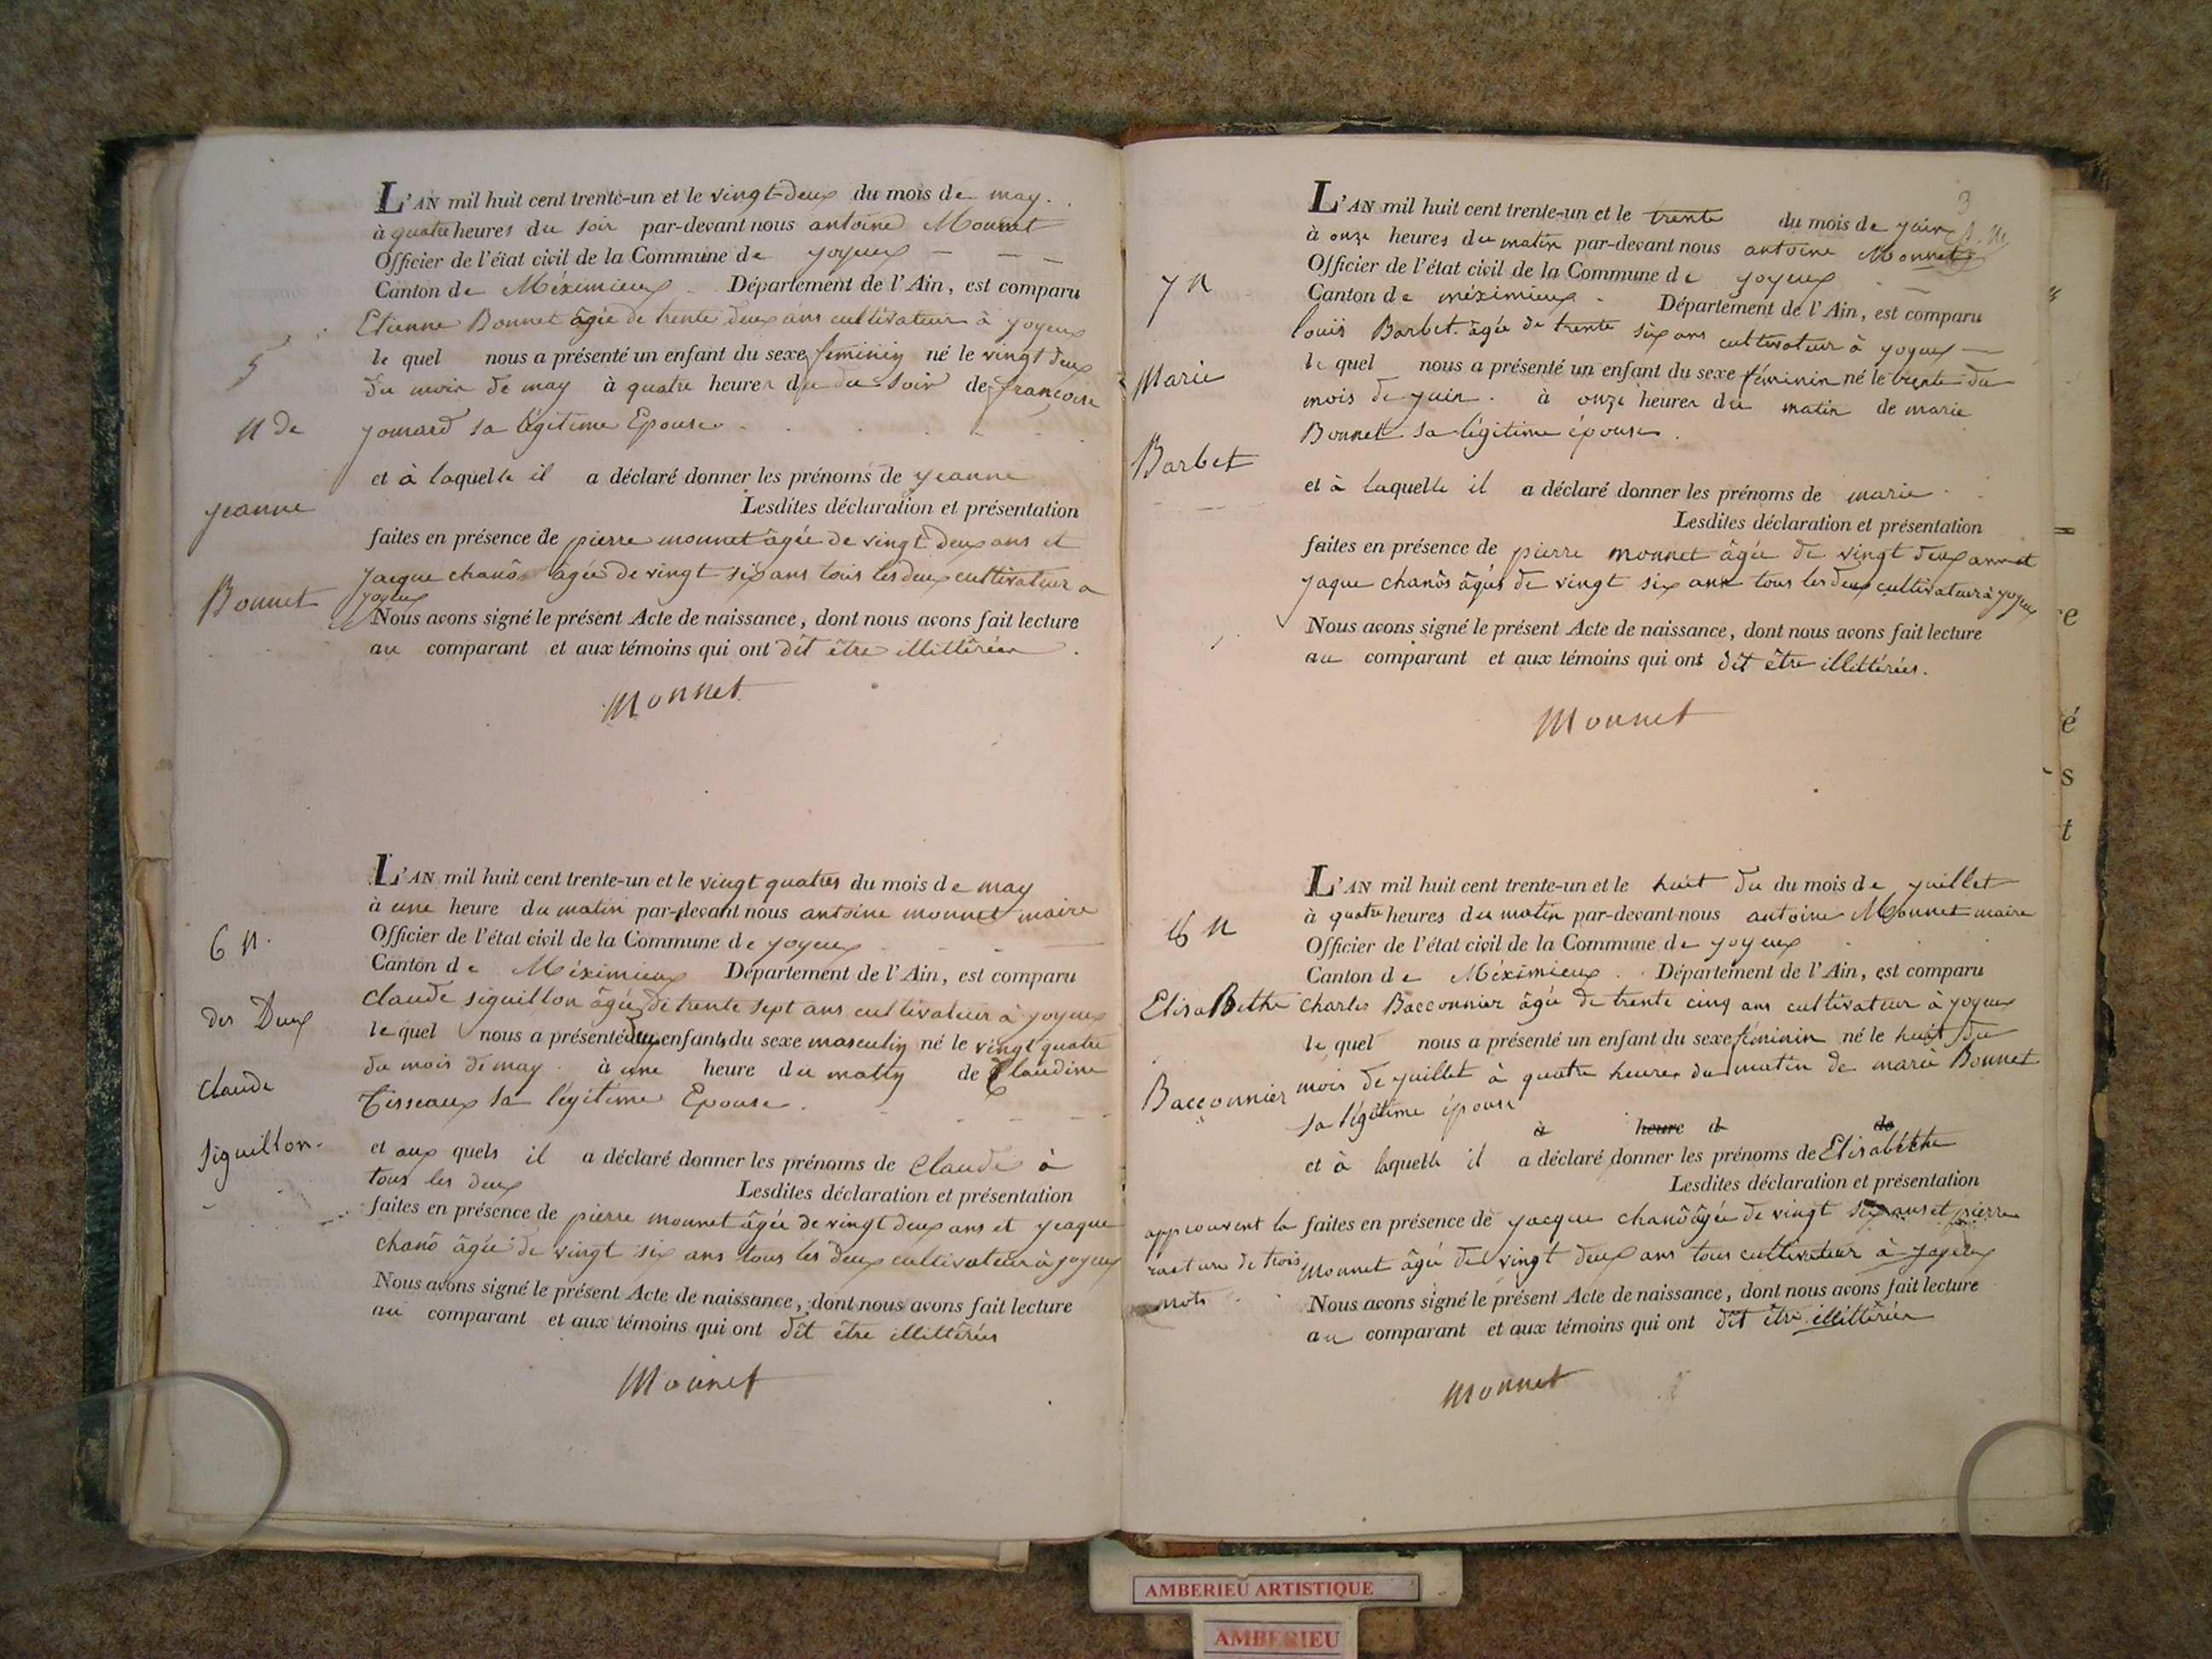 L'AN mil huit cent trente-un et le vingt-deux du mois de may.
à quatre heures du soir par-devant nous antoine Monnet
Officier de l'état civil de la Commune de joyeux
Canton de Méximieux Département de l'Ain, est comparu
Etienne Bonnet âgée de trente deux ans cultivateur à joyeux
le quel nous a présenté un enfant du sexe féminin né le vingt deux
du mois de may à quatre heures du du soir de françoise
jomard sa légitime Epouse
et à laquelle il a déclaré donner les prénoms de jeanne
Lesdites déclaration et présentation
faites en présence de pierre monnet âgée de vingt deux ans et
jacque chanô âgée de vingt six ans tous les deux cultivateur a
joyeux
Nous avons signé le présent Acte de naissance, dont nous avons fait lecture
au comparant et aux témoins qui ont dit être illittérées
Monnet
5
N de
jeanne
Bonnet
L'AN mil huit cent trente-un et le vingt quatres du mois de may
à une heure du matin par-devant nous antoine monnet maire
Officier de l'état civil de la Commune de joyeux
Canton de Méximieux Département de l'Ain, est comparu
Claude siguillon âgée de trente sept ans cultivateur à joyeux
le quel nous a présenté deux enfants du sexe masculin né le vingt quatre
du mois de may à une heure du matin de Claudine
Tisseaux sa légitime Epouse.
et aux quels il a déclaré donner les prénoms de Claude à
tous les deux Lesdites déclaration et présentation
faites en présence de pierre monnet âgée de vingt deux ans et jeaque
chanô âgée de vingt six ans tous les deux cultivateur à joyeux
Nous avons signé le présent Acte de naissance, dont nous avons fait lecture
au comparant et aux témoins qui ont dit être illittérées
Monnet
6 N.
des Deux
Claude
siguillon.
3
L'AN mil huit cent trente-un et le trente du mois de juin
à onze heures du matin par-devant nous antoine Monnet
Officier de l'état civil de la Commune de joyeux
Canton de méximieux Département de l'Ain, est comparu
louis Barbet âgée de trente six ans cultivateur à joyeux
le quel nous a présenté un enfant du sexe féminin né le trente du
mois de juin. à onze heures du matin de marie
Bonnet sa légitime épouse.
et à laquelle il a déclaré donner les prénoms de marie
Lesdites déclaration et présentation
faites en présence de pierre monnet âgée de vingt deux ans et
jaque chanôs âgés de vingt six ans tous les deux cultivateur à joyeux
Nous avons signé le présent Acte de naissance, dont nous avons fait lecture
au comparant et aux témoins qui ont dit être illittérées.
Monnet
7 N
Marie
Barbet
L'AN mil huit cent trente-un et le huit du du mois de juillet
à quatre heures du matin par-devant nous antoine Monnet maire
Officier de l'état civil de la Commune de joyeux
Canton de Méximieux. Département de l'Ain, est comparu
Charles Bacconnier âgée de trente cinq ans cultivateur à joyeux
le quel nous a présenté un enfant du sexe féminin né le huit du
mois de juillet à quatre heures du matin de marie Bonnet
sa légitime épouse
à heure d de
et à laquelle il a déclaré donner les prénoms de Elisabethe
Lesdites déclaration et présentation
faites en présence de jacque chanô âgée de vingt six ans et pierre
Monnet âgée de vingt deux ans tous cultivateur à joyeux
Nous avons signé le présent Acte de naissance, dont nous avons fait lecture
au comparant et aux témoins qui ont dit être illittérées
Monnet
N
ElisaBethe
Bacconnier
approuvent la
rature de trois
mots
e
é
s
t
AMBERIEU ARTISTIQUE
AMBERIEU